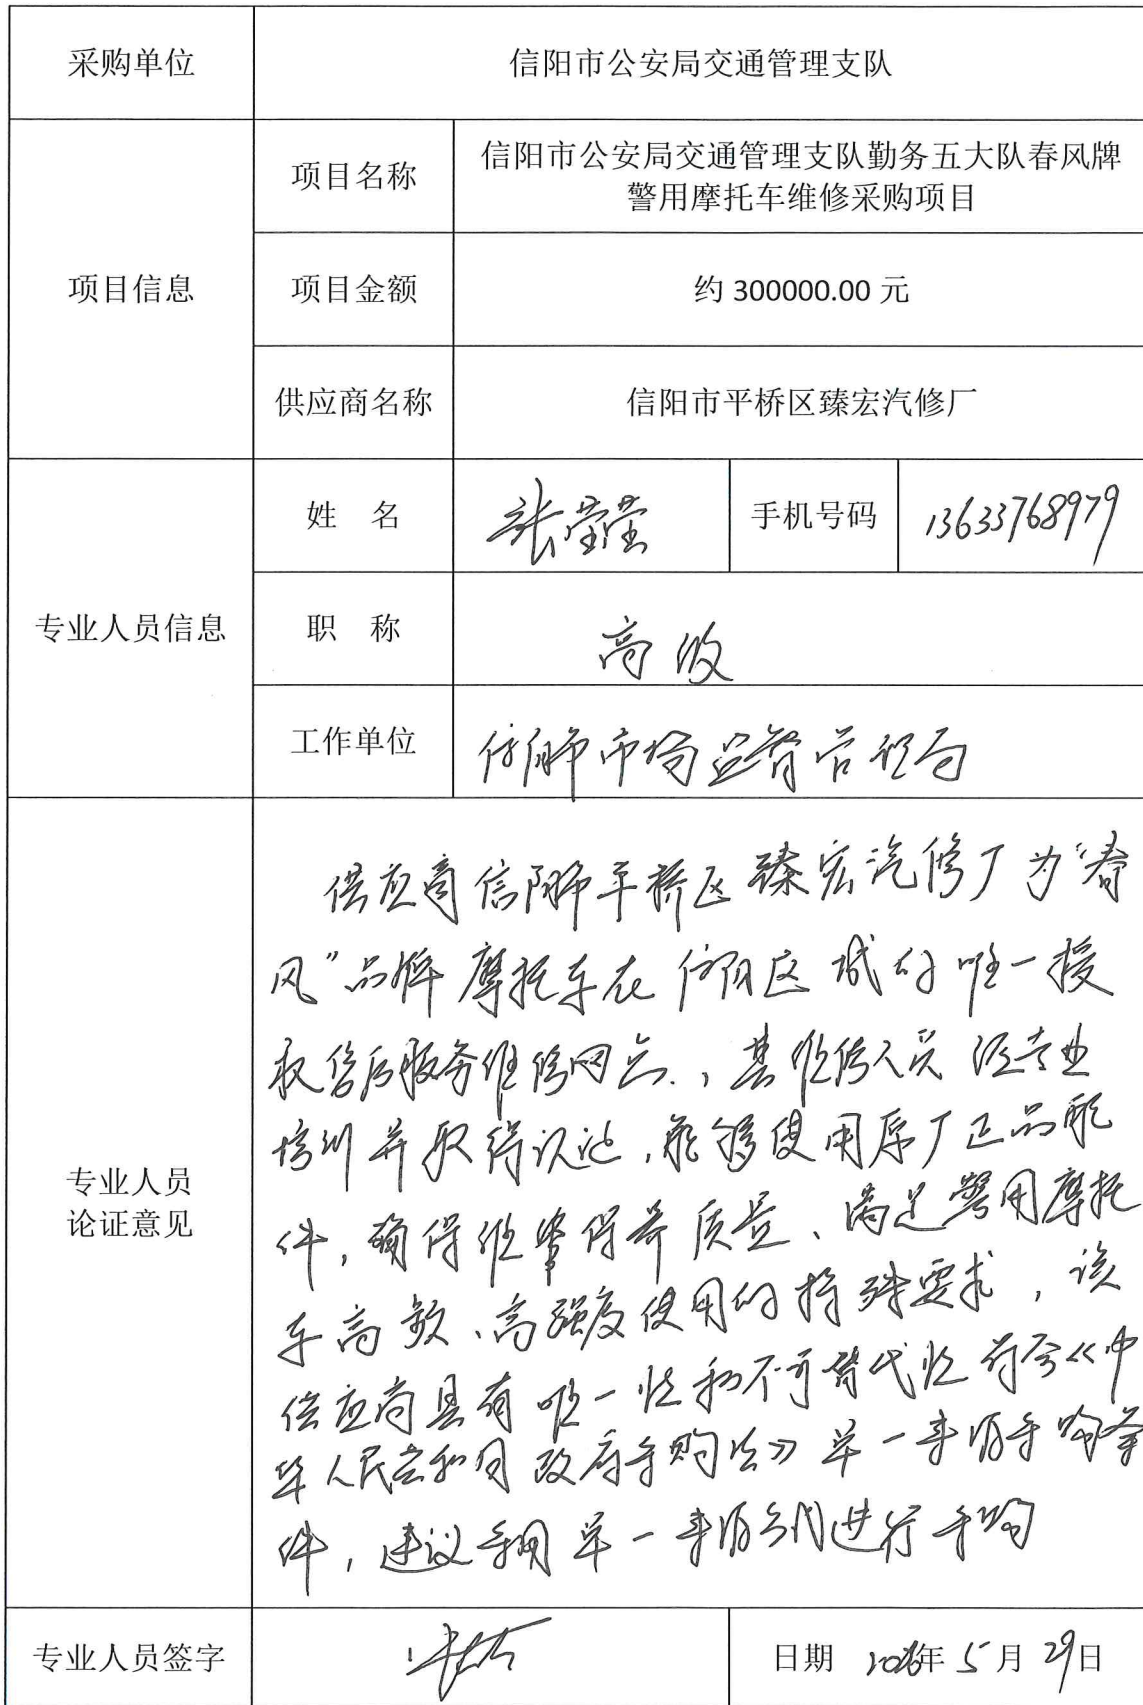 采购单位 信阳市公安局交通管理支队
项目信息
项目名称 信阳市公安局交通管理支队勤务五大队春风牌
警用摩托车维修采购项目
项目金额 约 300000.00 元
供应商名称 信阳市平桥区臻宏汽修厂
专业人员信息
姓 名 张莹莹 手机号码 13633768979
职 称 高级
工作单位 信阳市市场监督管理局
专业人员
论证意见
供应商信阳市平桥区臻宏汽修厂为“春
风”品牌摩托车在信阳区域的唯一授
权售后服务维修网点，其维修人员经专业
培训并取得认证，能够使用原厂正品配
件，确保维修保养质量、满足警用摩托
车高频、高强度使用的特殊要求，该
供应商具有唯一性和不可替代性符合《中
华人民共和国政府采购法》单一来源采购条
件，建议采用单一来源方式进行采购
专业人员签字
日期 年 5 月 29 日